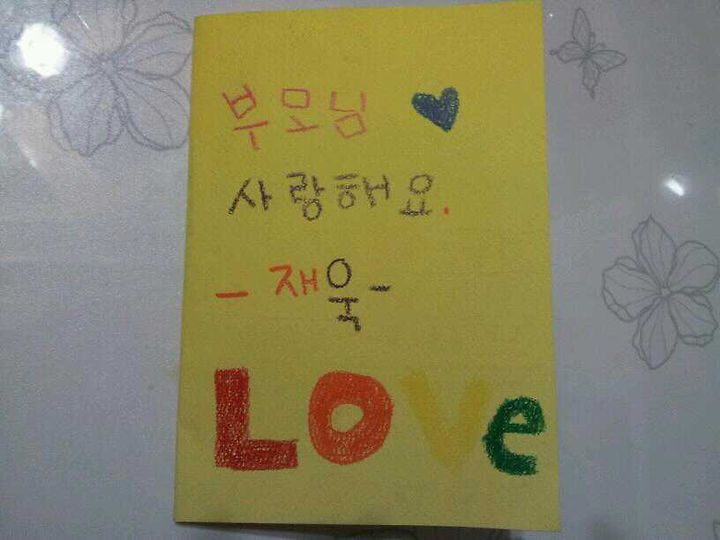 부모님
사랑해요.
- 재욱 -
LOVe